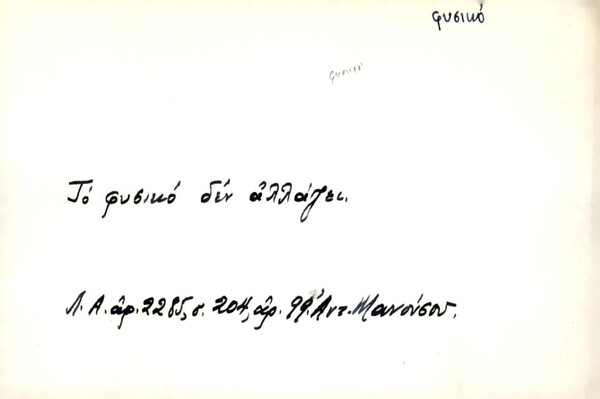 φυσικό
φυσικό
Τό φυσικό δέν ἀλλάζει.
Λ.Α. ἀρ. 2285, σ. 204, ἀρ. 99. Ἀντ. Μανούσου.